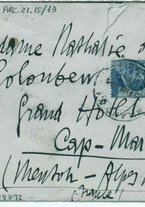 ARC. 21.15/13
dame Nathalie d
Colomben
Grand Hôtel
Cap-Mar
(Menton - Alpes M
(France)